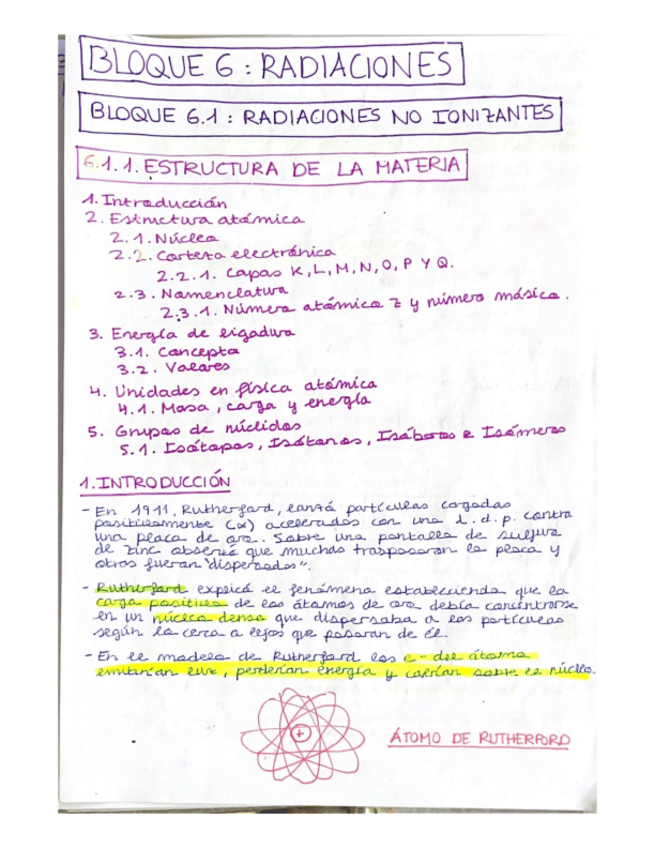 BLOQUE 6 : RADIACIONES
BLOQUE 6.1 : RADIACIONES NO IONIZANTES
6.1.1. ESTRUCTURA DE LA MATERIA
1. Introducción
2. Estructura atómica
2.1. Núcleo
2.2. Corteza electrónica
2.2.1. Capas K, L, M, N, O, P Y Q.
2.3. Nomenclatura
2.3.1. Número atómico Z y número másico.
3. Energía de ligadura
3.1. Concepto
3.2. Valores
4. Unidades en física atómica
4.1. Masa, carga y energía
5. Grupos de núclidos
5.1. Isótopos, Isótonos, Isóbaros e Isómeros
1. INTRODUCCIÓN
- En 1911, Rutherford, lanzó partículas cargadas
positivamente (α) aceleradas con una d.d.p. contra
una placa de oro. Sobre una pantalla de sulfuro
de zinc observó que muchas traspasaron la placa y
otras fueron "dispersadas".
- Rutherford explicó el fenómeno estableciendo que la
carga positiva de los átomos de oro debía concentrarse
en un núcleo denso que dispersaba a las partículas
según lo cerca o lejos que pasaran de él.
- En el modelo de Rutherford los e- del átomo
emitirían luz, perderían energía y caerían sobre el núcleo.
+
ÁTOMO DE RUTHERFORD